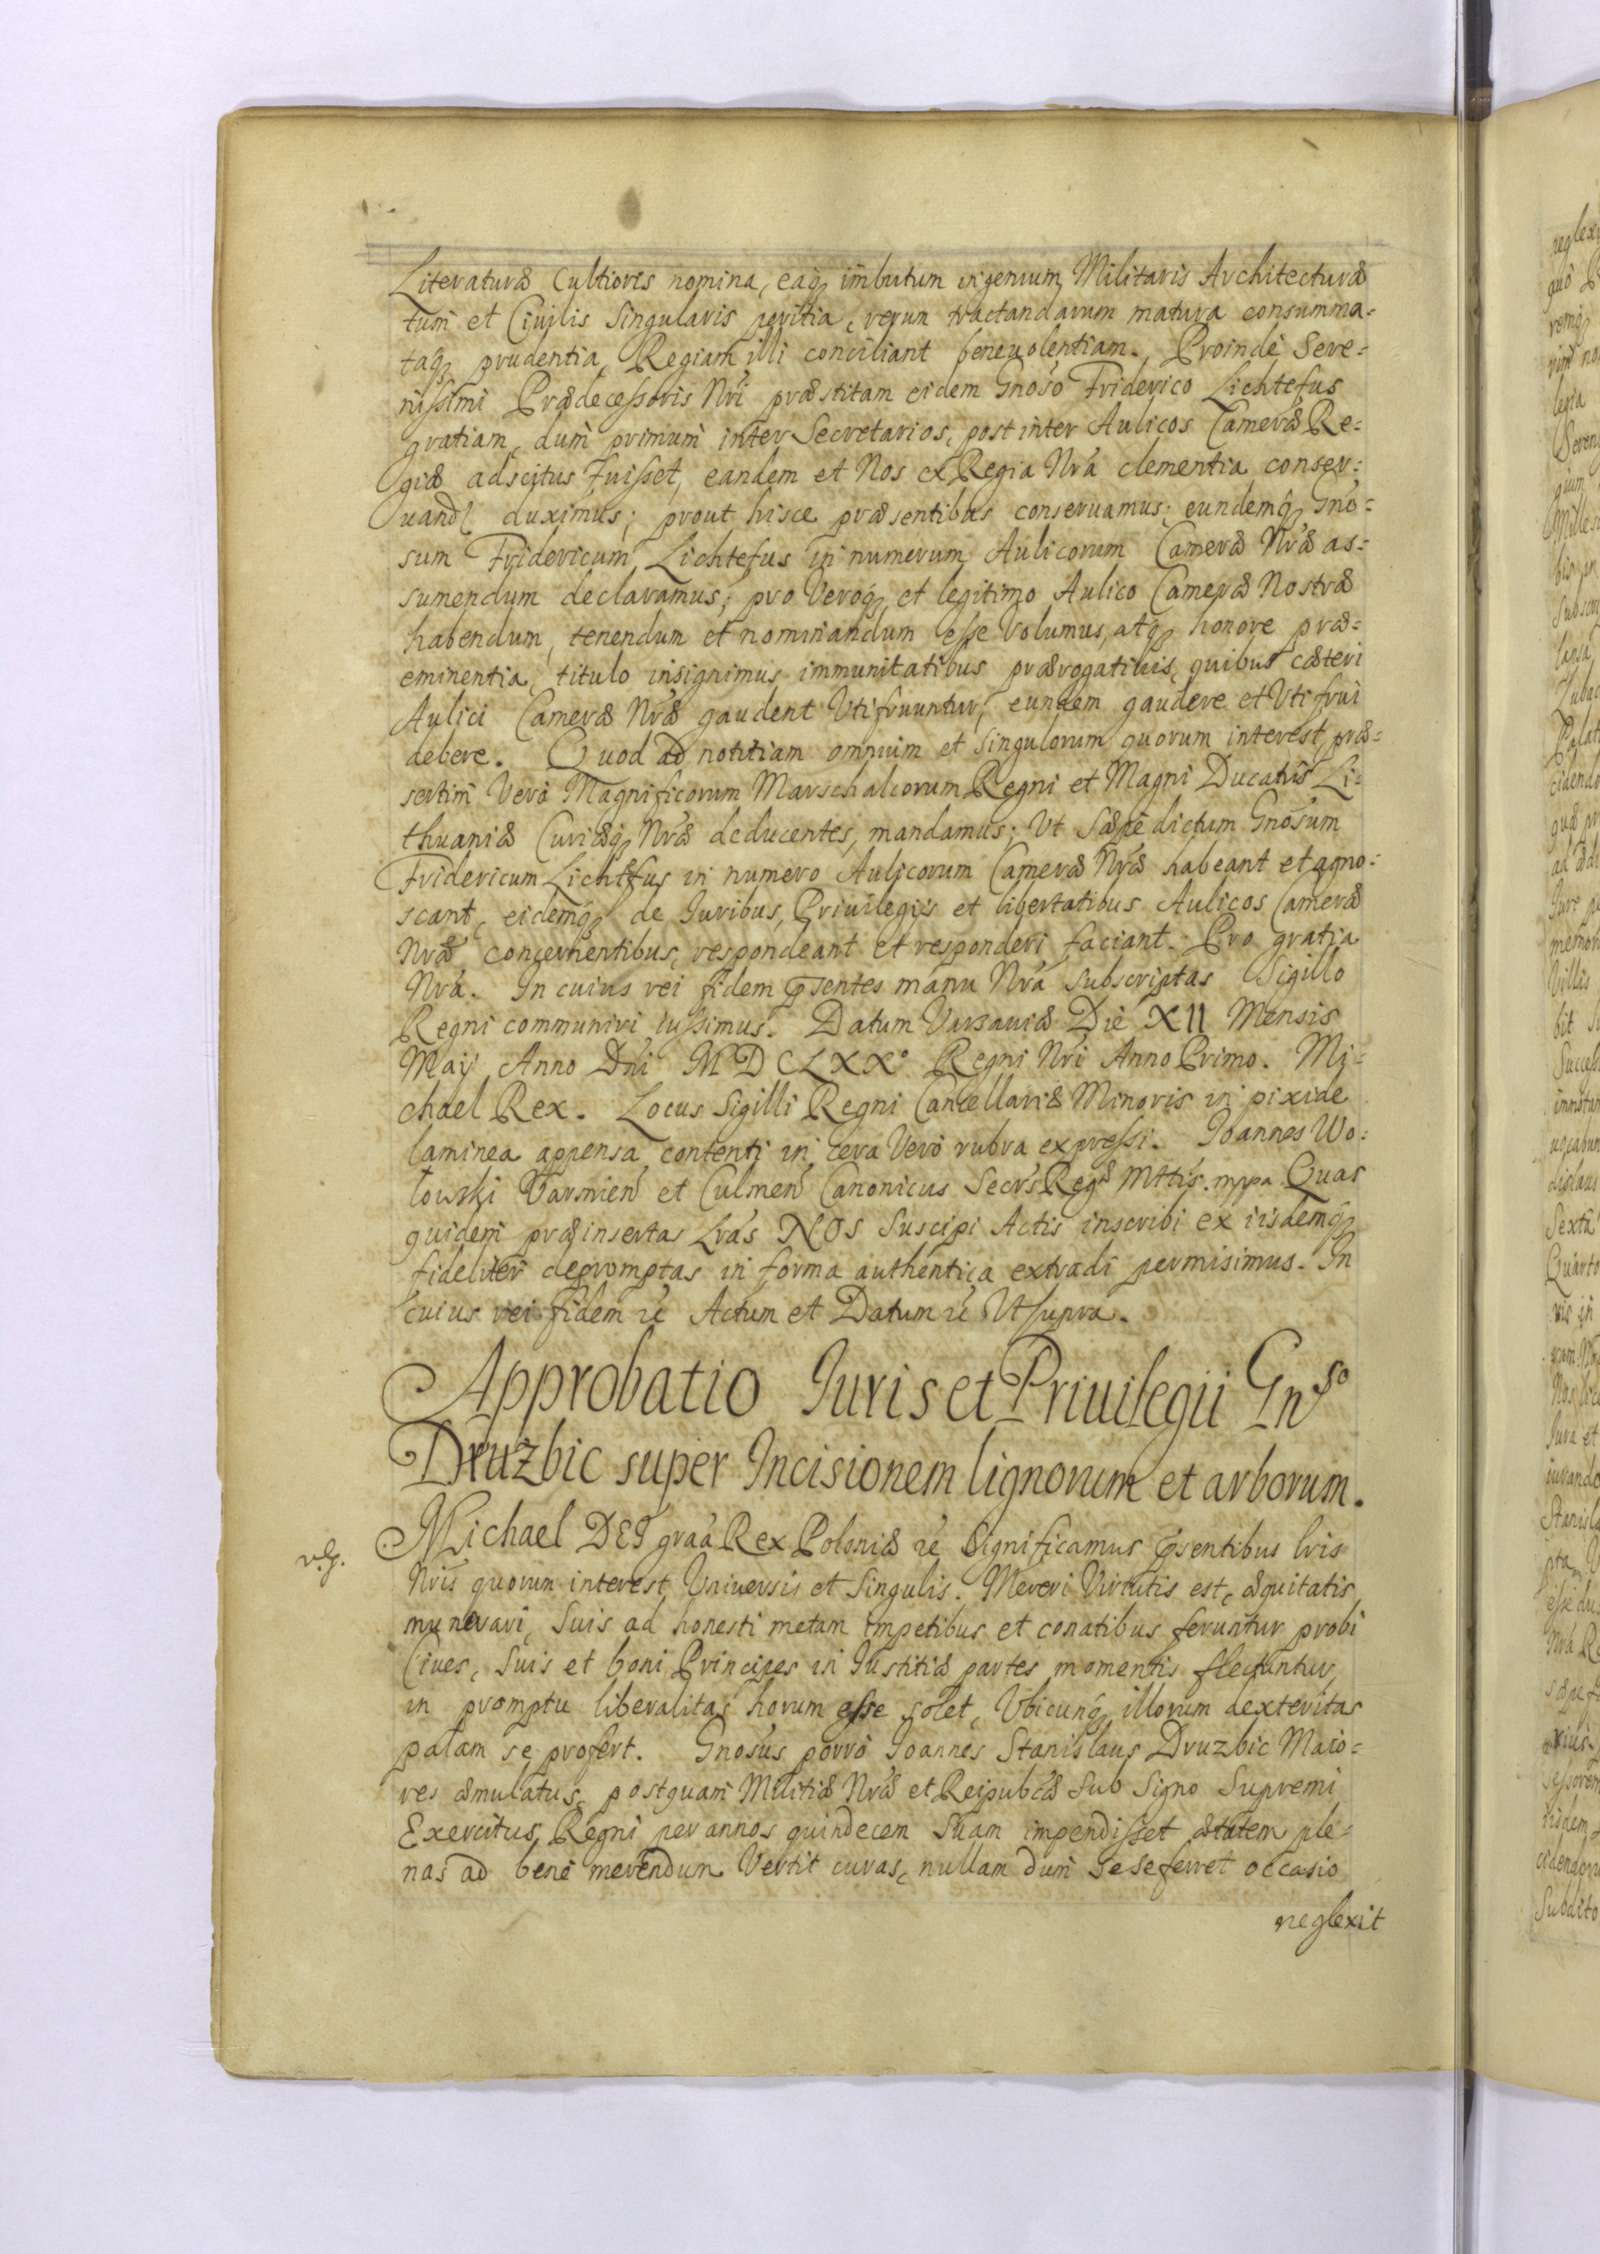 Literaturæ Cultioris nomina, eaq₃ imbutum ingenium, Militaris Architecturæ
tum et Ciuilis Singularis peritia, rerum tractandarum matura consumma-
taq₃ prudentia, Regiam illi conciliant beneuolentiam. Proinde Sere-
nissimi Prædecessoris Nri præstitam eidem Gnoso Friderico Lichtefus
gratiam, dum primum inter Secretarios, post inter Aulicos Cameræ Re-
giæ adscitus fuisset, eandem et Nos ex Regia Nra clementia conser-
uandã duximus; prout hisce præsentibus conseruamus; eundemq₃ Gno-
sum Fridericum Lichtefus in numerum Aulicorum Cameræ Nræ as-
sumendum declaramus; pro Veroq₃ et legitimo Aulico Cameræ Nostræ
habendum, tenendum et nominandum esse Volumus, atq₃ honore præ-
eminentia, titulo insignimus immunitatibus prærogatiuis, quibus cæteri
Aulici Cameræ Nræ gaudent Vtifruuntur, eundem gaudere et Vti frui
debere. Quod ad notitiam omnium et singulorum quorum interest, præ-
sertim Vero Magnificorum Marschalcorum Regni et Magni Ducatus Li-
thuaniæ Curiæq₃ Nræ deducentes, mandamus; Vt Sæpe dictum Gnosum
Fridericum Lichtefus in numero Aulicorum Cameræ Nræ habeant et agno-
scant, eidemq₃ de Iuribus, Priuilegijs et libertatibus Aulicos Cameræ
Nræ concernentibus, respondeant et responderi faciant. Pro gratia
Nra. In cuius rei fidem pñsentes manu Nra Subscriptas Sigillo
Regni communiri iussimus. Datum Varsauiæ Die XII Mensis
Maij Anno Dni MDCLXX° Regni Nri Anno Primo. Mi-
chael Rex. Locus Sigilli Regni Cancellariæ Minoris in pixide
laminea appensa contenti in cera Vero rubra expressi. Ioannes Wo-
łowski Varmien et Culmen Canonicus Secrs Regæ Mttis. mppa Quas
quidem præinsertas Lras NOS Suscipi Actis inscribi ex iisdemq₃
fideliter depromptas in forma authentica extradi permisimus. In
cuius rei fidem etc Actum et Datum etc Vt supra.
Approbatio Iuris et Priuilegii Gnso
Drużbic super Incisionem lignorum et arborum.
Michael DEI graa Rex Poloniæ etc Significamus pñsentibus lris
Nris quorum interest Vniuersis et Singulis. Mereri Virtutis est, æquitatis
munerari, Suis ad honesti metam impetibus et conatibus feruntur probi
Ciues, Suis et boni Principes in Iustitiæ partes momentis flectuntur,
in promptu liberalitas horum esse solet, Vbicunq₃ illorum dexteritas
palam se profert. Gnosus porro Ioannes Stanislaus Druzbic Maio-
res æmulatus, postquam Militiæ Nræ et Reipubcæ Sub Signo Supremi
Exercitus Regni per annos quindecem Suam impendisset ætatem ple-
nas ad bene merendum Vertit curas, nullam dum sese ferret occasio
neglexit